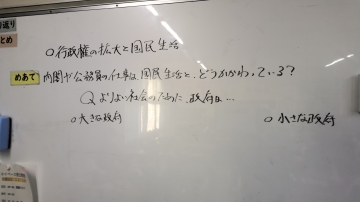 返り
とめ
○行政権の拡大と国民生活
めあて 内閣や公務員の仕事は、国民生活と、どうかかわっている?
Q よりよい社会のために、政府は…
○大きな政府
○小さな政府